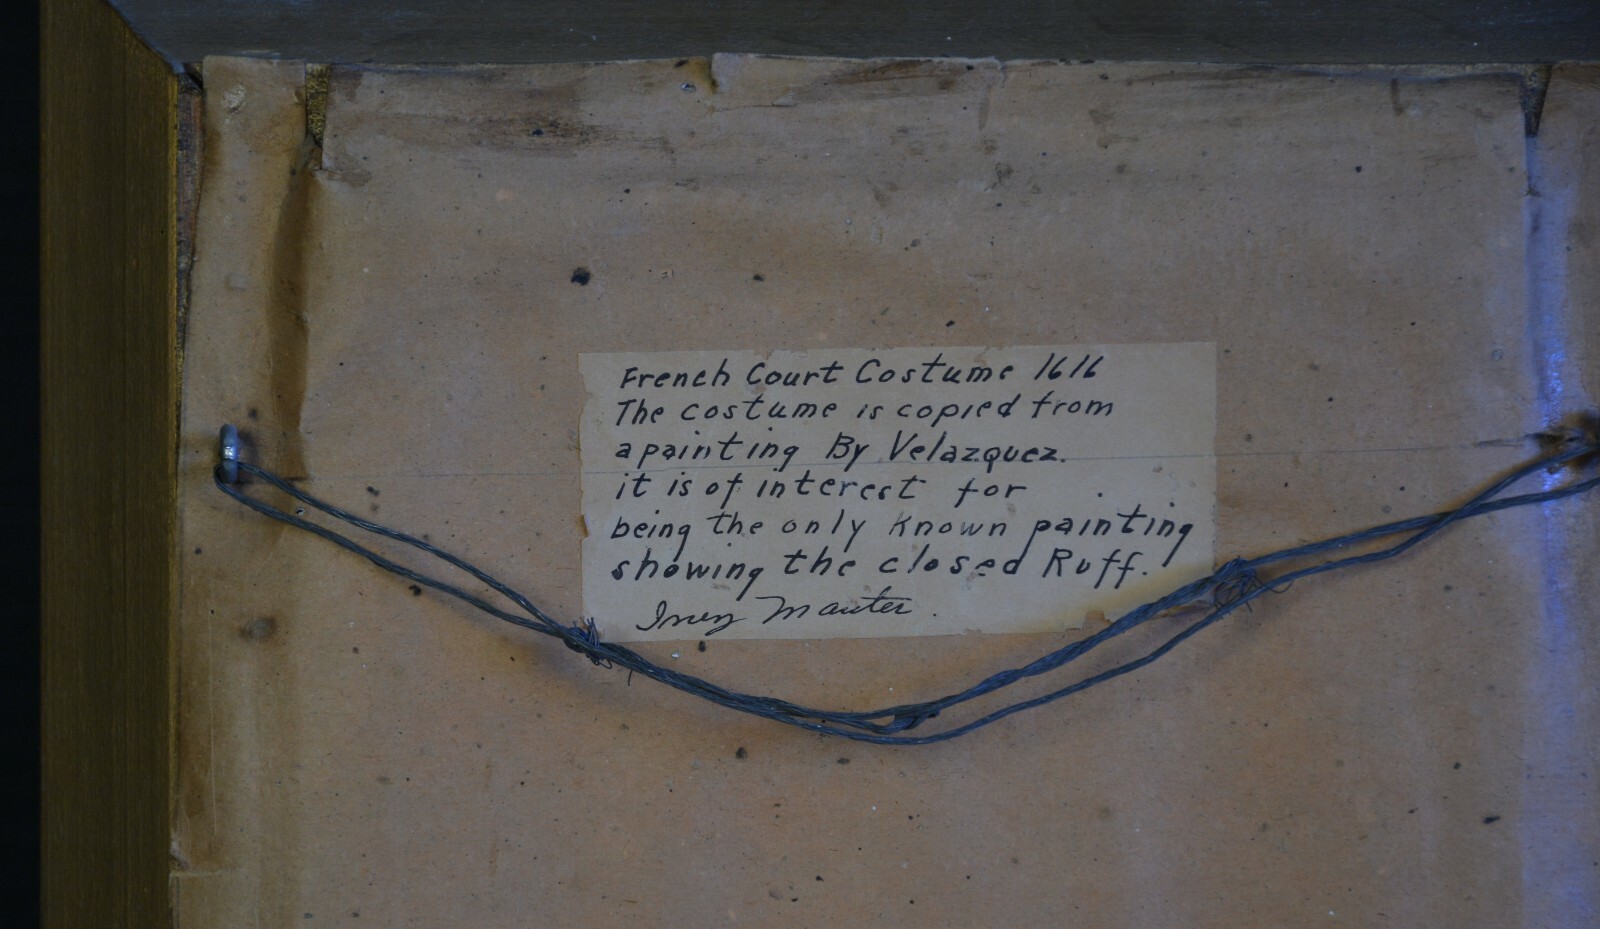 French Court Costume 1616
The costume is copied from
a painting By Velazquez.
it is of interest for
being the only known painting
showing the closed Ruff.
Manter.